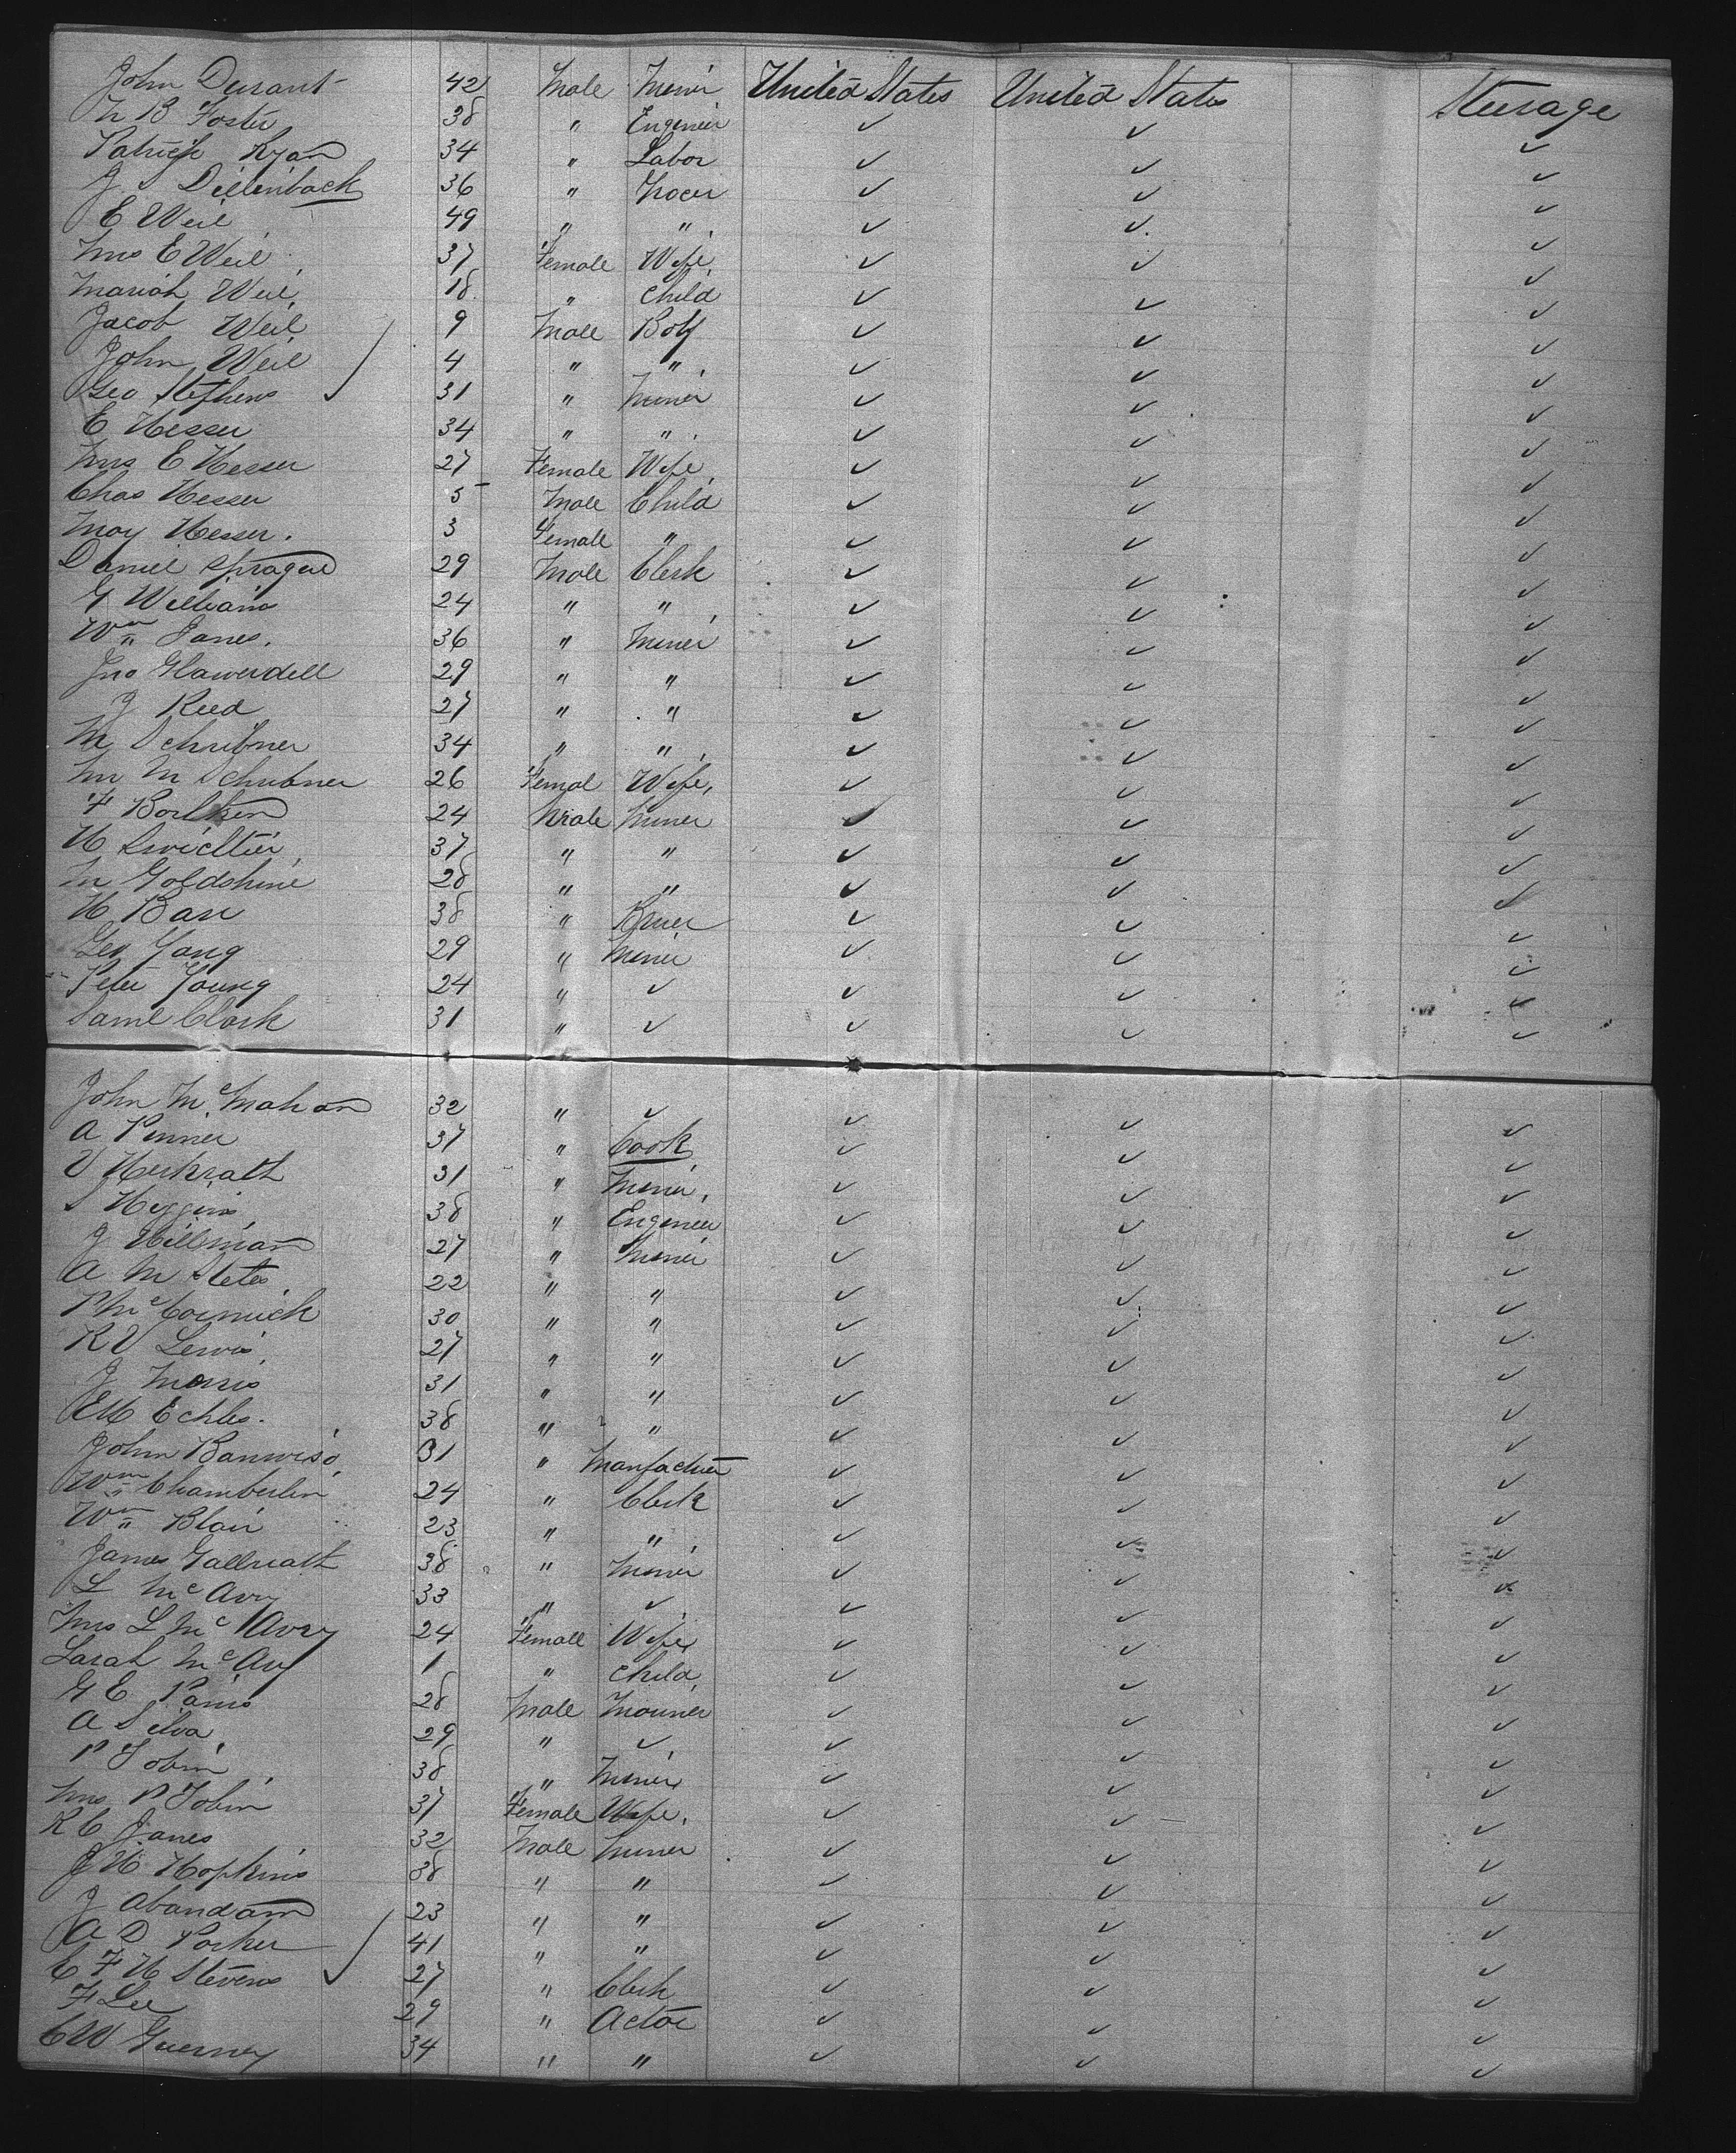 John Durant 42 Male Miner United States United States Steerage
N B Foster 38 " Engineer ✓ ✓ ✓
Patrick Ryan 34 " Labor ✓ ✓ ✓
J S Dillenback 36 " ✓ ✓ ✓
E Weil 49 " " ✓ ✓ ✓
Mrs E Weil 37 Female Wife ✓ ✓ ✓
Mariah Weil 18 " Child ✓ ✓ ✓
Jacob Weil 9 Male Boy ✓ ✓ ✓
John Weil 4 " " ✓ ✓ ✓
Geo Stephens ✓ 31 " Miner ✓ ✓ ✓
E Hesser 34 " " ✓ ✓ ✓
Mrs E Hesser 27 Female Wife ✓ ✓ ✓
Chas Hesser 5 Male Child ✓ ✓ ✓
May Hesser. 3 Female " ✓ ✓ ✓
Daniel Sprague 29 Male Clerk ✓ ✓ ✓
G Williams 24 " " ✓ ✓ ✓
Wm Janes. 36 " Miner ✓ ✓ ✓
Jno 29 " " ✓ ✓ ✓
J Reed 27 " " ✓ ✓ ✓
M Schribner 34 " " ✓ ✓ ✓
Mr M Schribner 26 Femal Wife, ✓ ✓ ✓
F 24 Male Miner ✓ ✓ ✓
H 37 " " ✓ ✓ ✓
M Goldshine 28 " " ✓ ✓ ✓
H Barr 38 " ✓ ✓ ✓
Geo Yang 29 " Miner ✓ ✓ ✓
Peter Young 24 " ✓ ✓ ✓ ✓
Saml Clark 31 " ✓ ✓ ✓ ✓
John McMahon 32 " ✓ ✓ ✓ ✓
A Penner 37 " Cook ✓ ✓ ✓
V Herkrath 31 " Miner, ✓ ✓ ✓
S Higgins 38 " Engineer ✓ ✓ ✓
J Hillman 27 " Miner ✓ ✓ ✓
A M 22 " " ✓ ✓ ✓
P McCormick 30 " " ✓ ✓ ✓
R V Lewis 27 " " ✓ ✓ ✓
J Morris 31 " " ✓ ✓ ✓
E H Echles. 38 " " ✓ ✓ ✓
John 31 " Manfacturer ✓ ✓ ✓
Wm Chamberlin 24 " Clerk ✓ ✓ ✓
Wm Blair 23 " " ✓ ✓ ✓
James Gallreath 38 " Miner ✓ ✓ ✓
L McAvy 33 " ✓ ✓ ✓ ✓
Mrs L McAvry 24 Female Wife ✓ ✓ ✓
Sarah McAvy 1 " Child ✓ ✓ ✓
G E 28 Male ✓ ✓ ✓
A Silva 29 " ✓ ✓ ✓ ✓
P Tobin 38 " Miner ✓ ✓ ✓
Mrs P Tobin 37 Female Wife. ✓ ✓ ✓
R C Janes 32 Male Miner ✓ ✓ ✓
J H Hopkins 38 " " ✓ ✓ ✓
J Abandam 23 " " ✓ ✓ ✓
A D Parker 41 " " ✓ ✓ ✓
C F H Stevens ✓ 27 " Clerk ✓ ✓ ✓
F Lee 29 " Actor ✓ ✓ ✓
C W Guerney 34 " " ✓ ✓ ✓